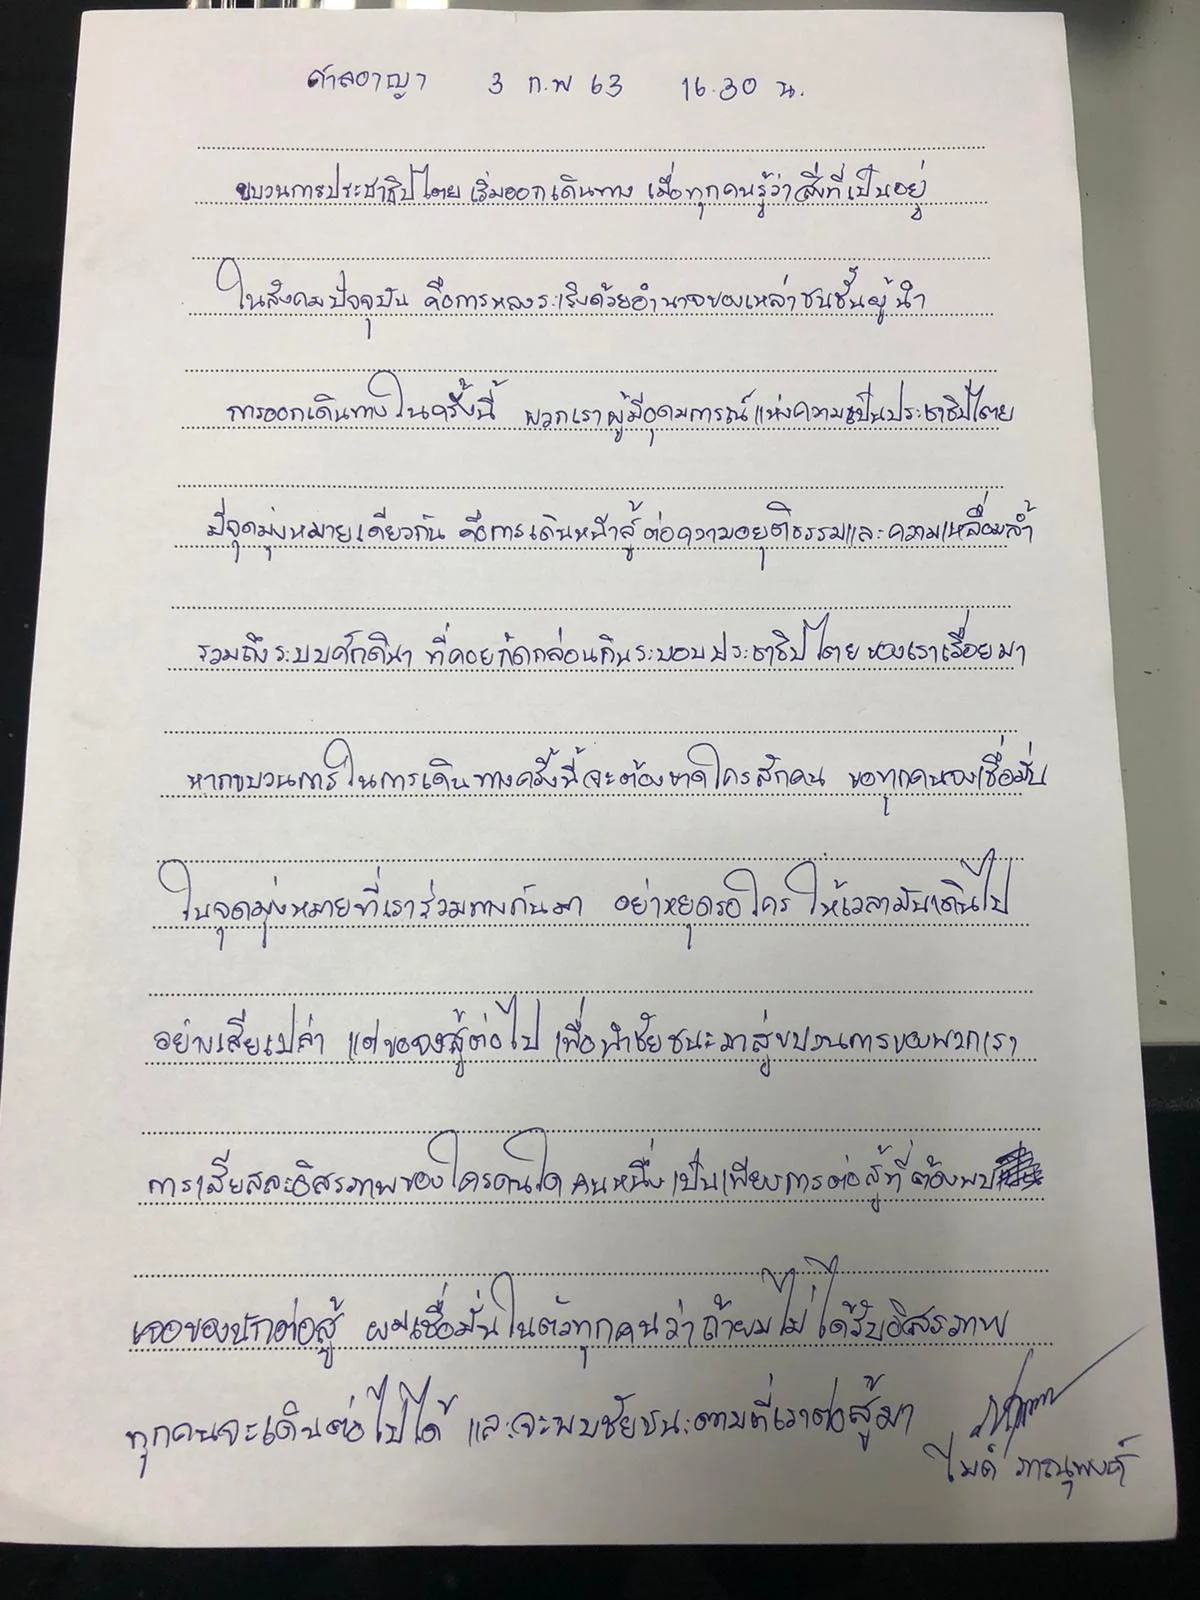 ศาลอาญา 3 ก.พ 63 16.30 น.
ขบวนการประชาธิปไตย เริ่มออกเดินทาง เมื่อทุกคนรู้ว่าสิ่งที่เป็นอยู่
ในสังคมปัจจุบัน คือการหลงระเริงด้วยอำนาจของเหล่าชนชั้นผู้นำ
การออกเดินทางในครั้งนี้ พวกเราผู้มีอุดมการณ์แห่งความเป็นประชาธิปไตย
มีจุดมุ่งหมายเดียวกัน คือการเดินหน้าสู้ต่อความอยุติธรรมและความเหลื่อมล้ำ
รวมถึงระบบศักดินา ที่คอยกัดกล่อนกินระบอบประชาธิปไตยของเราเรื่อยมา
หากขบวนการในการเดินทางครั้งนี้จะต้องขาดใครสักคน ขอทุกคนจงเชื่อมั่น
ในจุดมุ่งหมายที่เราร่วมทางกันมา อย่าหยุดรอใคร ให้เวลามันเดินไป
อย่างเสียเปล่า แต่ขอจงสู้ต่อไป เพื่อนำชัยชนะมาสู่ขบวนการของพวกเรา
การเสียสละอิสรภาพของใครคนใดคนหนึ่ง เป็นเพียงการต่อสู้ที่ต้องพบ
เจอของนักต่อสู้ ผมเชื่อมั่นในตัวทุกคนว่าถ้าผมไม่ได้รับอิสรภาพ
ทุกคนจะเดินต่อไปได้ และจะพบชัยชนะตามที่เราต่อสู้มา
ไมค์ ภาณุพงศ์